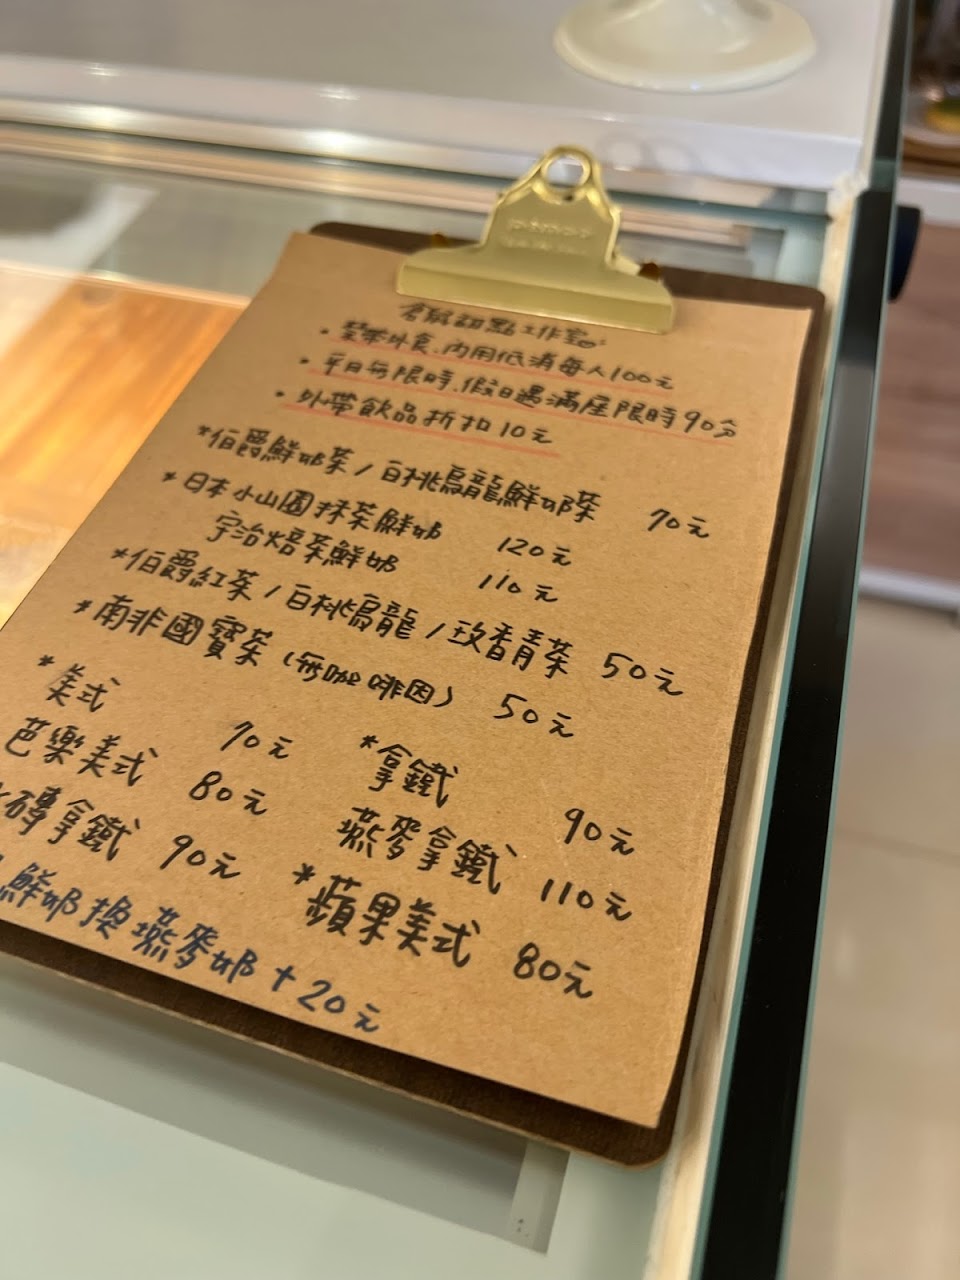 甜點工作室:
・禁帶外食、內用低消每人100元
・平日無限時、假日遇滿座限時90分
・外帶飲品折扣10元
*伯爵鮮奶茶/白桃烏龍鮮奶茶 70元
*日本小山園抹茶鮮奶 120元
宇治焙茶鮮奶 110元
*伯爵紅茶/白桃烏龍/玫香青茶 50元
*南非國寶茶(無咖啡因) 50元
*美式 70元
芭樂美式 80元
磚拿鐵 90元
*拿鐵 90元
燕麥拿鐵 110元
*蘋果美式 80元
鮮奶換燕麥奶+20元